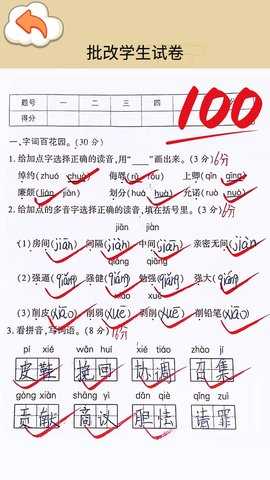 批改学生试卷
100
题号 一 二 三 四
得分
一、字词百花园。(30分)
1. 给加点字选择正确的读音,用"___"画出来。(3分)
绰约(zhuó chuò) 侮辱(rǔ rǔ) 上卿(qīng qīng)
廉颇(lián jiān) 划分(huá huà) 允诺(ruò nuò)
2. 给加点的多音字选择正确的读音,填在括号里。(3分)
jiān jiàn
(1) 房间(jiān) 间隔(jiàn) 中间(jiān) 亲密无间(jiàn)
qiáng qiǎng
(2) 强逼(qiǎng) 强健(qiáng) 勉强(qiǎng) 强大(qiáng)
xiāo xuē
(3) 削皮(xiāo) 削弱(xuē) 剥削(xuē) 削铅笔(xiāo)
3. 看拼音,写词语。(8分)
pí xié wǎn huí xié tiáo zhào jí
皮鞋 挽回 协调 召集
gòng xiàn shāng yì dǎn qiè qǐng zuì
贡献 商议 胆怯 请罪